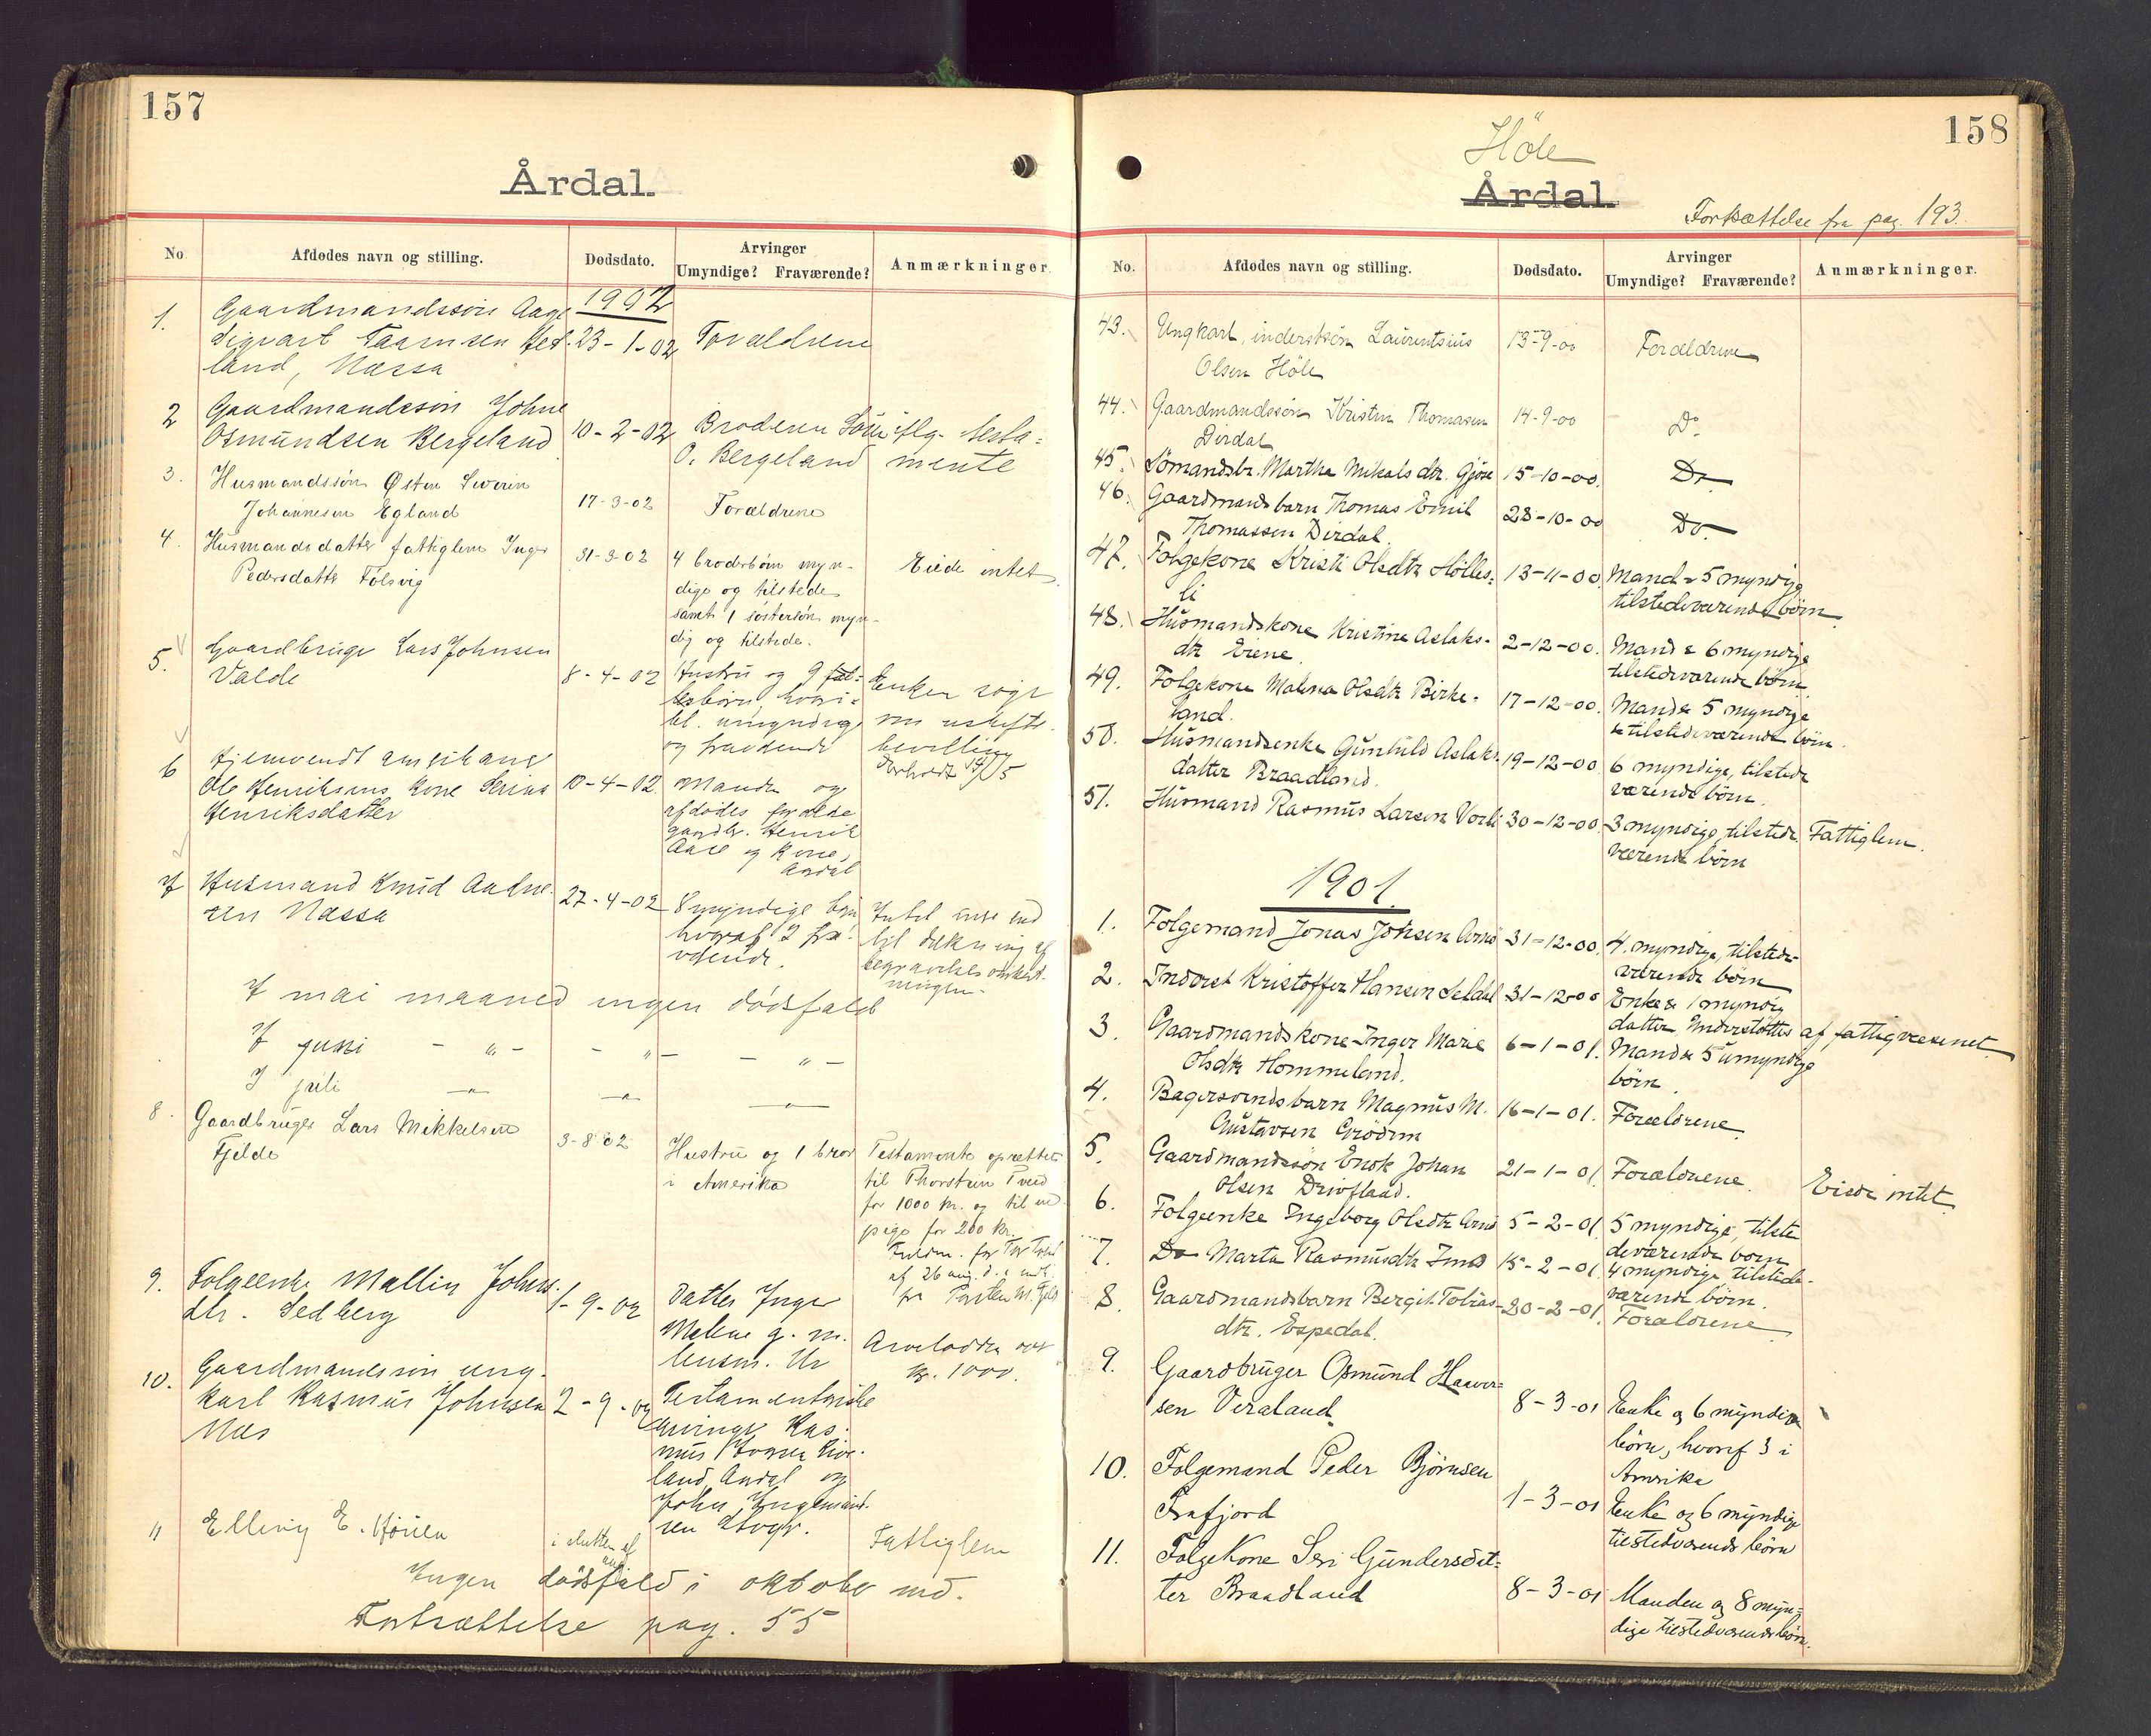 157
Årdal.
No
Afdødes navn og stilling.
Dødsdato.
Arvinger
Umyndige? Fraværende?
Anmærkninger.
1902
1. Gaardmandssøn Aage
Sigvart Taarnsen Het-
land, Næssa
23-1-02
Forældrene
2 Gaardmandssøn Johne
Osmundsen Bergeland
10-2-02
Broderen
O. Bergeland
iflg. testa-
mente
3. Husmandssøn Østen Severin
Johannesen Egland
17-3-02
Forældrene
4. Husmandsdatter fattiglem Inger
Pedersdatter Følsvig
31-3-02
4 broderbørn myn-
dige og tilstede
samt 1 søstersøn myn-
dig og tilstede.
Eiede intet
5. Gaardbruger Lars Johnsen
Valde
8-4-02
Hustru og 9 fæl-
lesbørn, hvori-
bl. umyndige
og fraværende
Enken søger
om uskifte-
bevilling
6 Hjemvendt amerikaner
Ole Henriksens kone Serina
Henriksdatter
10-4-02
Manden og
afdødes forældre
gaardbr. Henrik
og kone,
Årdal
7 Husmand Knud Aadne-
sen Næssa
27-4-02
8 myndige børn
hvoraf 2 fra-
værende.
Intet uden end
til dækning af
begravelsesomkost-
ninger.
I mai maaned ingen dødsfald
I juni - " - - " - - " -
I juli - " - - " - - " -
8. Gaardbruger Lars Mikkelsen
Fjelde
3-8-02
Hustru og 1 bror
i Amerika
Testamente oprettet
til Thorstein Tveid
for 1000 kr. og til en
pige for 200 kr.
af 26 aug. d.
9. Folgeenke Mallin Johns-
dtr. Sedberg
1-9-02
Datter Inger
Malene g. m.
lensm. Ur
Arvelodden over
kr. 1000.
10. Gaardmandssøn, ung-
karl Rasmus Johnsen
Næs
2-9-02
Testamentariske
arvinger Ras-
mus
land, Årdal og
John Ingemund-
sen
11 Elling E.
i slutten af
aug.
Fattiglem
Ingen dødsfald i oktober md.
Fortsættelse pag. 55
158
Höle
Årdal.
Fortsættelse fra pag. 193.
No.
Afdødes navn og stilling.
Dødsdato.
Arvinger
Umyndige? Fraværende?
Anmærkninger.
43. Ungkarl, inderstsøn Laurentsius
Olsen Höle
13-9-00
Forældrene
44. Gaardmandssøn Kristen Thomasen
Dirdal
14-9-00
Do.
45. Sømandsb. Martha Mikals dtr. Gjøse
15-10-00.
Do
46. Gaardmandsbarn Thomas Emil
Thomassen Dirdal.
28-10-00
Do.
47. Folgekone Kristi Olsdtr Hölles-
li
13-11-00.
Mand & 5 myndige
tilstedeværende börn.
48. Husmandskone Kristine Aslaks-
dtr Eiene.
2-12-00.
Mand & 6 myndige
tilstedeværende børn.
49. Folgekone Malena Olsdtr Birke-
land.
17-12-00.
Mand & 5 myndige
tilstedeværende börn.
50. Husmandsenke Gunhild Aslaks-
datter Braadland.
19-12-00
6 myndige, tilstede
værende börn.
51. Husmand Rasmus Larsen Vorli
30-12-00
3 myndige, tilstede
værende börn
Fattiglem.
1901.
1. Folgemand Jonas Johsen Ims
31-12-00.
4 myndige, tilstede-
værende börn
2. Inderst Kristoffer Hansen Seldal
31-12-00
Enke & 1 myndig
datter Understöttes af fattigvæsenet.
3. Gaardmandskone Inger Marie
Olsdtr Hommeland.
6-1-01.
Mand & 5 umyndige
börn.
4. Bagersvendsbarn Magnus M.
Gustavsen Grödem
16-1-01.
Forældrene.
5. Gaardmandssön Enok Johan
Olsen Drivflaad.
21-1-01
Forældrene.
Eiede intet.
6. Folgeenke Ingeborg Olsdtr Ims
5-2-01
5 myndige, tilste
deværende børn
7. Do Marta Rasmusdtr Ims
15-2-01
4 myndige, tilstede-
værende börn.
8. Gaardmandsbarn Bergit Tobias-
dtr. Espedal.
20-2-01.
Forældrene
9. Gaardbruger Osmund Haaver-
sen Veraland
8-3-01
Enke og 6 myndige
börn, hvoraf 3 i
Amerika
10. Folgemand Peder Bjørnsen
Frafjord
1-3-01
Enke og 6 myndige
tilstedværende börn
11. Folgekone Seri Gundersdat-
ter Braadland
8-3-01
Manden og 8 myn-
dige tilstedværende börn.